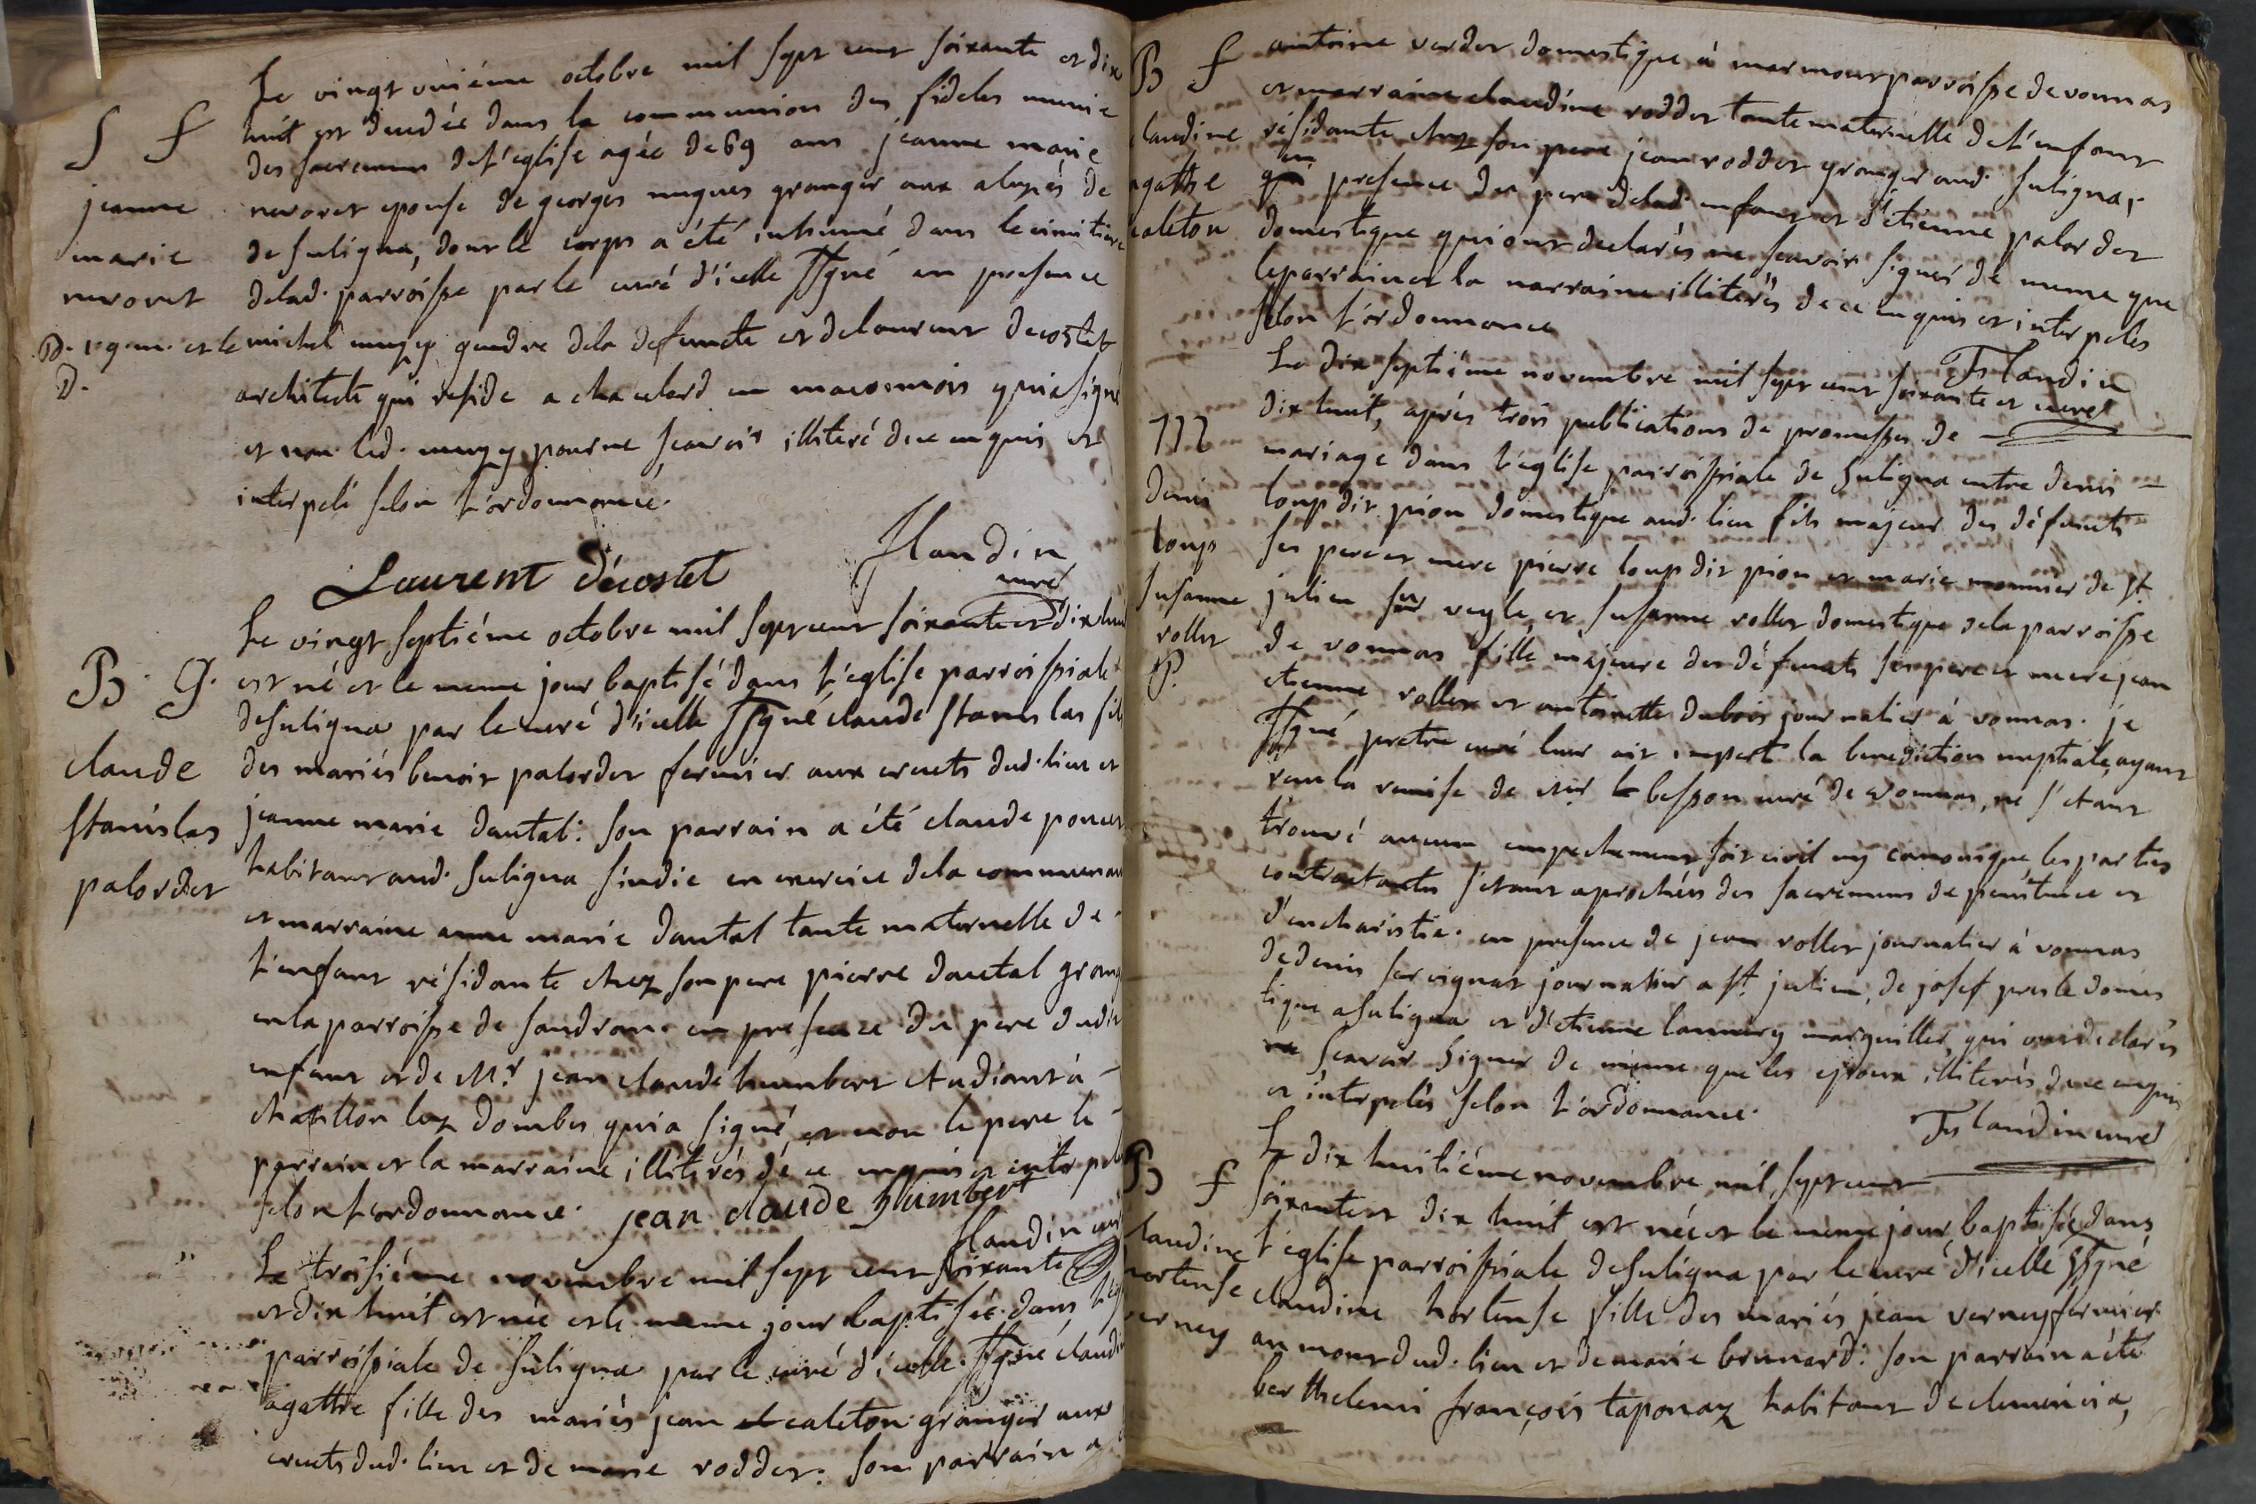 Le vingt unième octobre mil sept cent soixante et dix
huit est decedée dans la communion des fideles munie
des sacremens de l'église agée de 69 ans jeanne marie
nevoret epouse de georges nugues granger aux alyxés de
de suligna, dont le corps a été inhumé dans le cimitiere
delad. parroisse par le curé d'icelle ssgné en presence
michel mugy gendre dela defunte et de laurent decostet
architecte qui reside a chacelard en maconnois qui a signé
et non led. mugy pour ne scavoir illiteré de ce enquis et
interpelé selon l'ordonnance.
S f
jeanne
marie
nevoret
D.
Laurent décostel
flandin
curé
Le vingt septième octobre mil sept cent soixante et dix huit
est né et le meme jour baptisé dans l'église parroissiale
de suligna par le curé d'icelle ssgné claude stanislas fils
des mariés benoit palordet fermier aux cruets dud. lieu et
jeanne marie dautal: son parrain a été claude poncet
habitant aud. suligna sindic en exercice dela communau
et marraine anne marie dautal tante maternelle de
l'enfant résidante chez son pere pierre dautal grang
en la parroisse de sandrans en presence du pere dudit
enfant et de Mr. jean claude humbert etudiant à
chatillon lez dombes qui a signé, et non le pere le
parrain et la marraine illiterés de ce enquis et interpelés
selon l'ordonnance.
B. G.
claude
stanislas
palordet
jean claude humbert
flandin curé
Le troisième novembre mil sept cent soixante
et dix huit est née et le meme jour baptisée dans l'eg
parroissiale de suligna par le curé d'icelle ssgné claudi
agathe fille des mariés jean caleton granger aux
cruets dud. lieu et de marie roddet: son parrain a
B f
claudine
agathe
caleton
antoine verdet domestique à marmont parroisse de vonnas
et marraine claudine roddet tante maternelle de l'enfant
résidante chez son pere jean roddet granger aud. suligna,
en presence du pere delad. enfant et d'etienne palordet
domestique qui ont declarés ne scavoir signer de meme que
le parrain et la marraine illiterés de ce enquis et interpelés
selon l'ordonnance
Flandin
curé
Le dix septième novembre mil sept cent soixante et
dix huit, après trois publications de promesses de
mariage dans l'église parroissiale de suligna entre denis
loup dit pion domestique aud. lieu fils majeur des défunts
ses pere et mere pierre loup dit pion et marie monnier de st.
julien sur veyle, et susanne rollet domestique dela parroisse
de vonnas fille majeure des défunts ses pere et mere jean
etienne rollet et antoinette dubois journalier à vonnas. je
ssgné pretre curé leur ait imparti la benediction nuptiale, ayant
vu la remise de Mr. besson curé de vonnas, ne s'étant
trouvé aucun empechement soit civil ny canonique les parties
contractantes s'etant aprochées des sacremens de penitence et
d'eucharistie. en presence de jean rollet journalier à vonnas
de denis servignat journalier a st. julien, de josef presle domes
tique a suligna et d'etienne lamurey marguiller, qui ont declarés
ne scavoir signer de meme que les epoux illiterés de ce enquis
et interpelés selon l'ordonnance.
denis
loup
susanne
rollet
P.
Flandin curé
Le dix huitième novembre mil sept cent
soixante et dix huit est née et le meme jour baptisée dans
l'église parroissiale de suligna par le curé d'icelle ssgné
claudine hortense fille des mariés jean verney fermier
au mont dud. lieu et de marie brunard: son parrain a été
barthelemi françois taponaz habitant de clemencia,
B f
claudine
hortense
verney